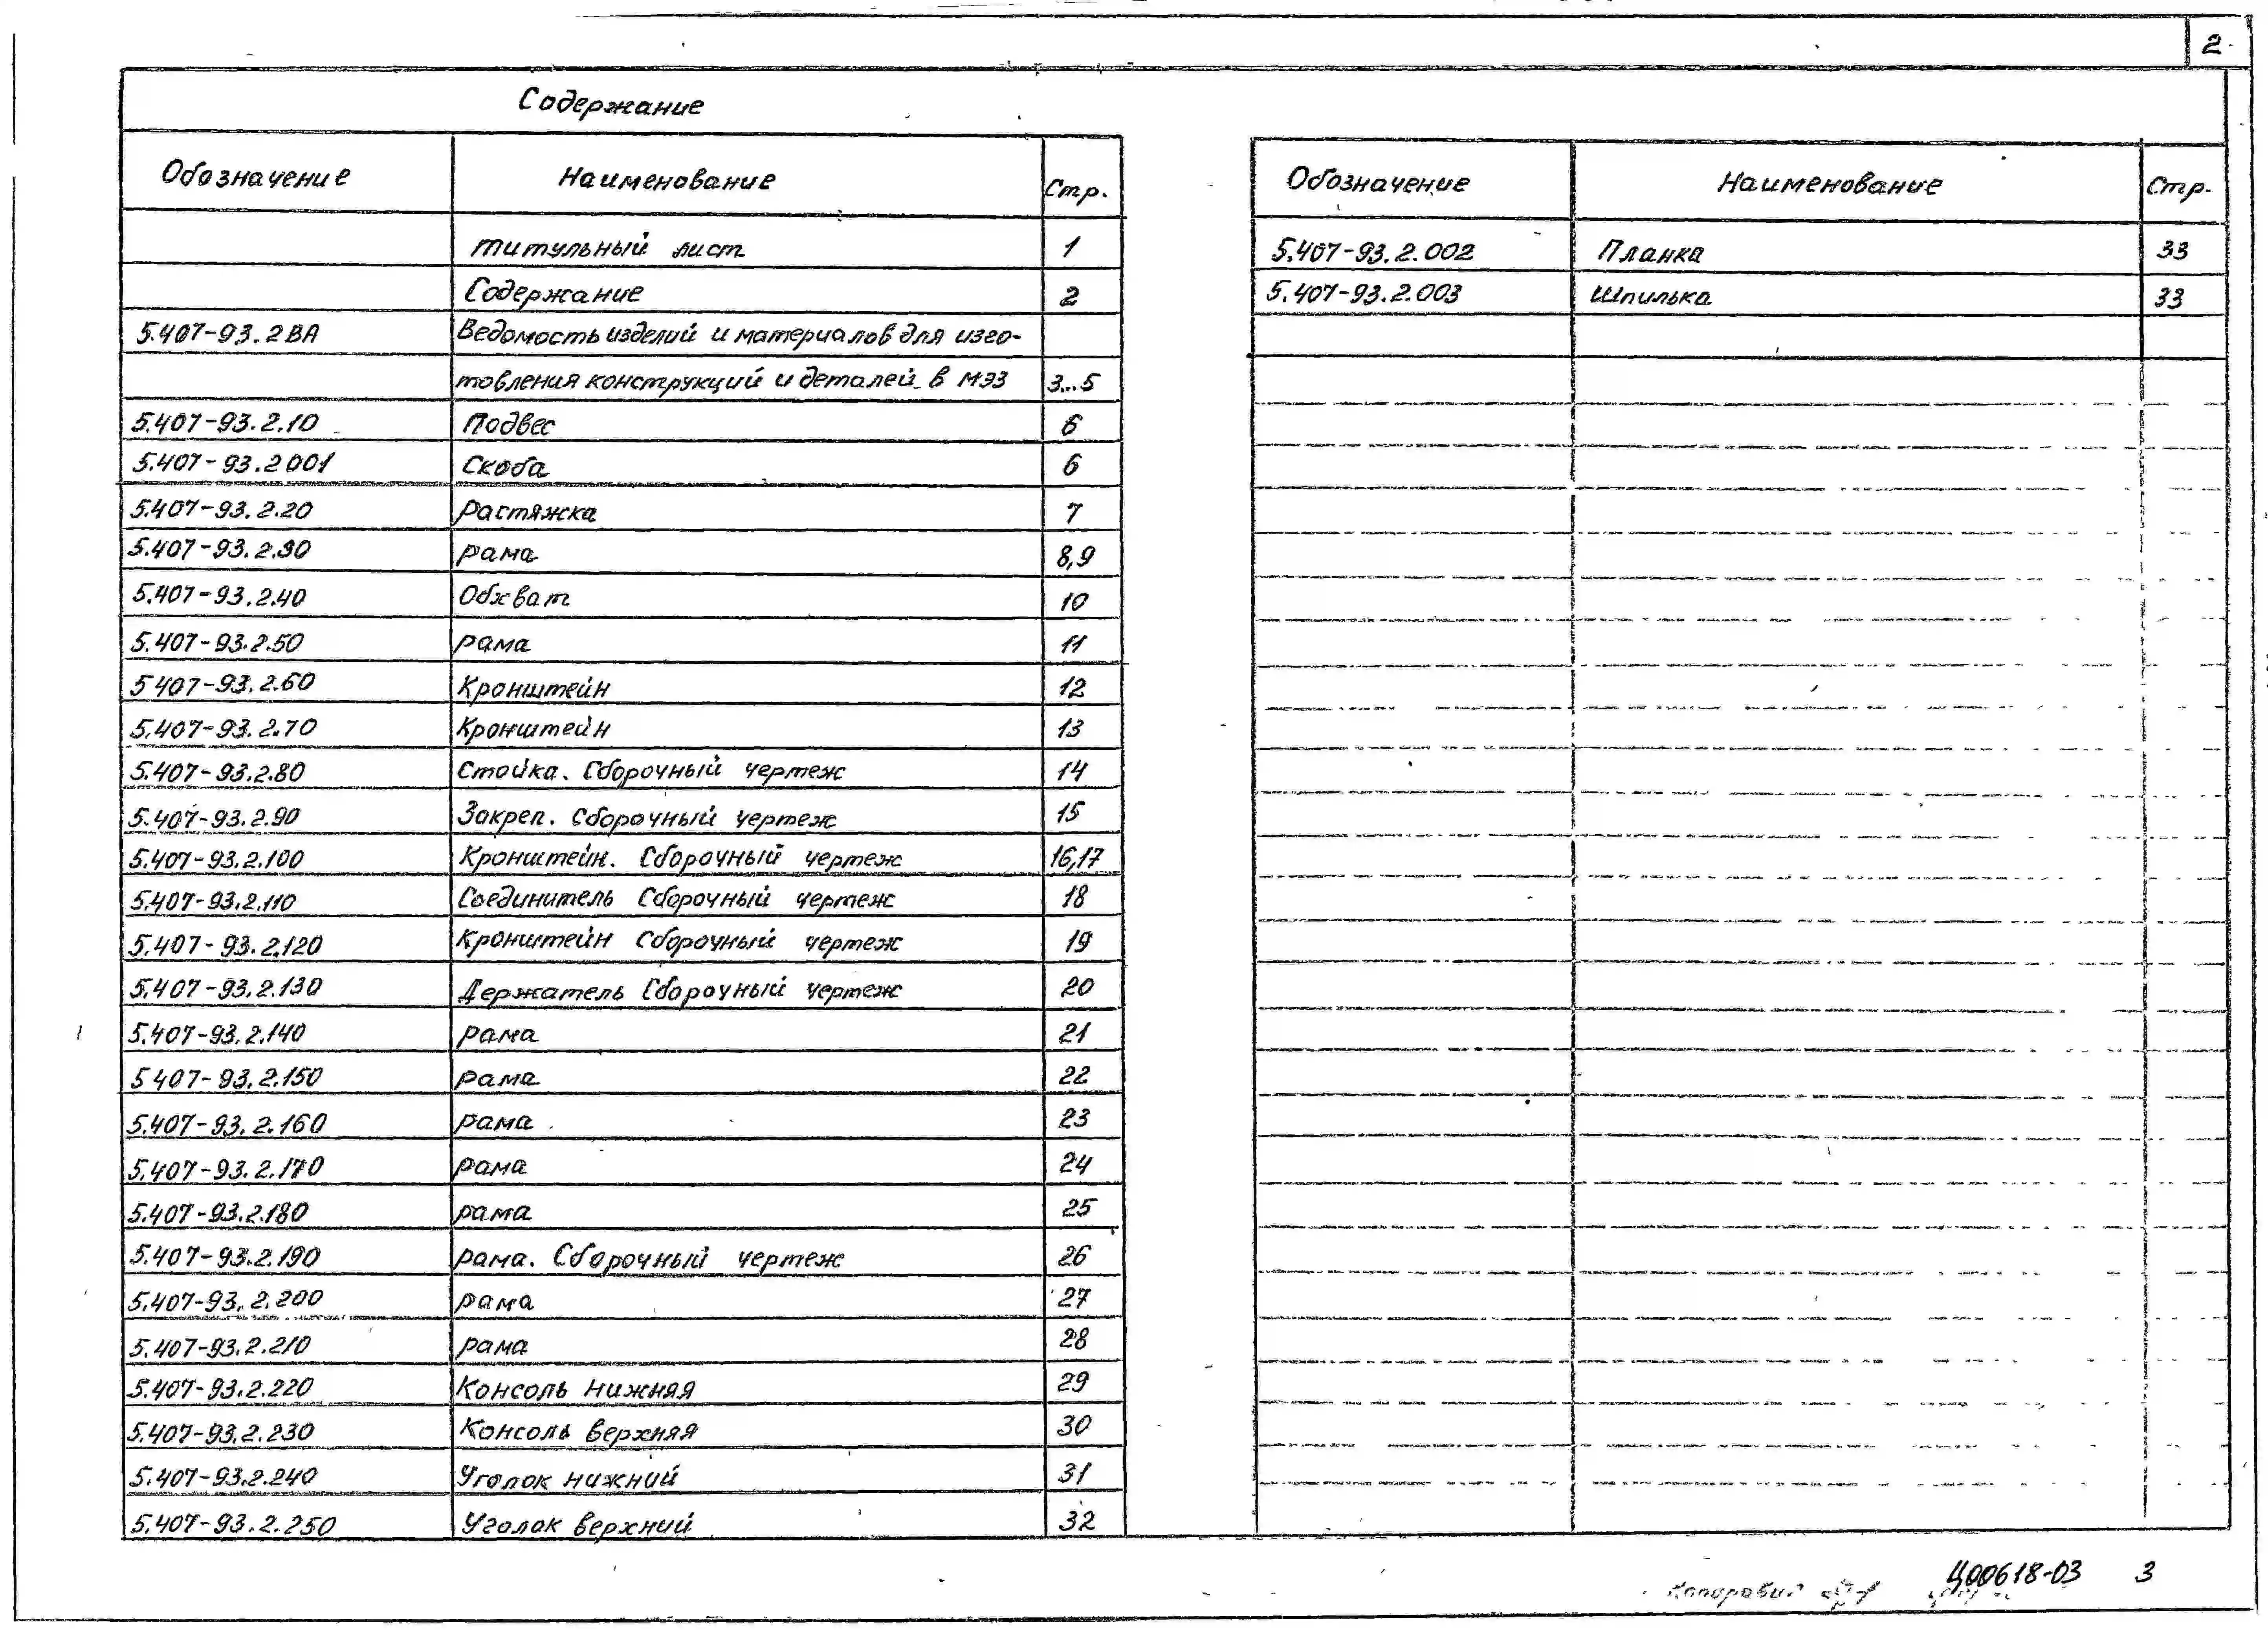 2
Содержание
Обозначение Наименование Стр.
титульный лист 1
Содержание 2
5.407-93.2ВА Ведомость изделий и материалов для изго-
товления конструкций и деталей в МЭЗ 3...5
5.407-93.2.10 Подвес 6
5.407-93.2 001 Скоба 6
5.407-93.2.20 растяжка 7
5.407-93.2.30 рама 8,9
5.407-93.2.40 Обхват 10
5.407-93.2.50 рама 11
5 407-93.2.60 Кронштейн 12
5.407-93.2.70 Кронштейн 13
5.407-93.2.80 Стойка. Сборочный чертеж 14
5.407-93.2.90 Закреп. Сборочный чертеж 15
5.407-93.2.100 Кронштейн. Сборочный чертеж 16,17
5.407-93.2.110 Соединитель Сборочный чертеж 18
5.407-93.2.120 Кронштейн Сборочный чертеж 19
5.407-93.2.130 Держатель Сборочный чертеж 20
5.407-93.2.140 рама 21
5 407-93.2.150 рама 22
5.407-93.2.160 рама 23
5.407-93.2.170 рама 24
5.407-93.2.180 рама 25
5.407-93.2.190 рама. Сборочный чертеж 26
5.407-93.2.200 рама 27
5.407-93.2.210 рама 28
5.407-93.2.220 Консоль нижняя 29
5.407-93.2.230 Консоль верхняя 30
5.407-93.2.240 Уголок нижний 31
5.407-93.2.250 Уголок верхний 32
Обозначение Наименование Стр.
5.407-93.2.002 Планка 33
5.407-93.2.003 Шпилька 33
Копировал
Ц00618-03 3